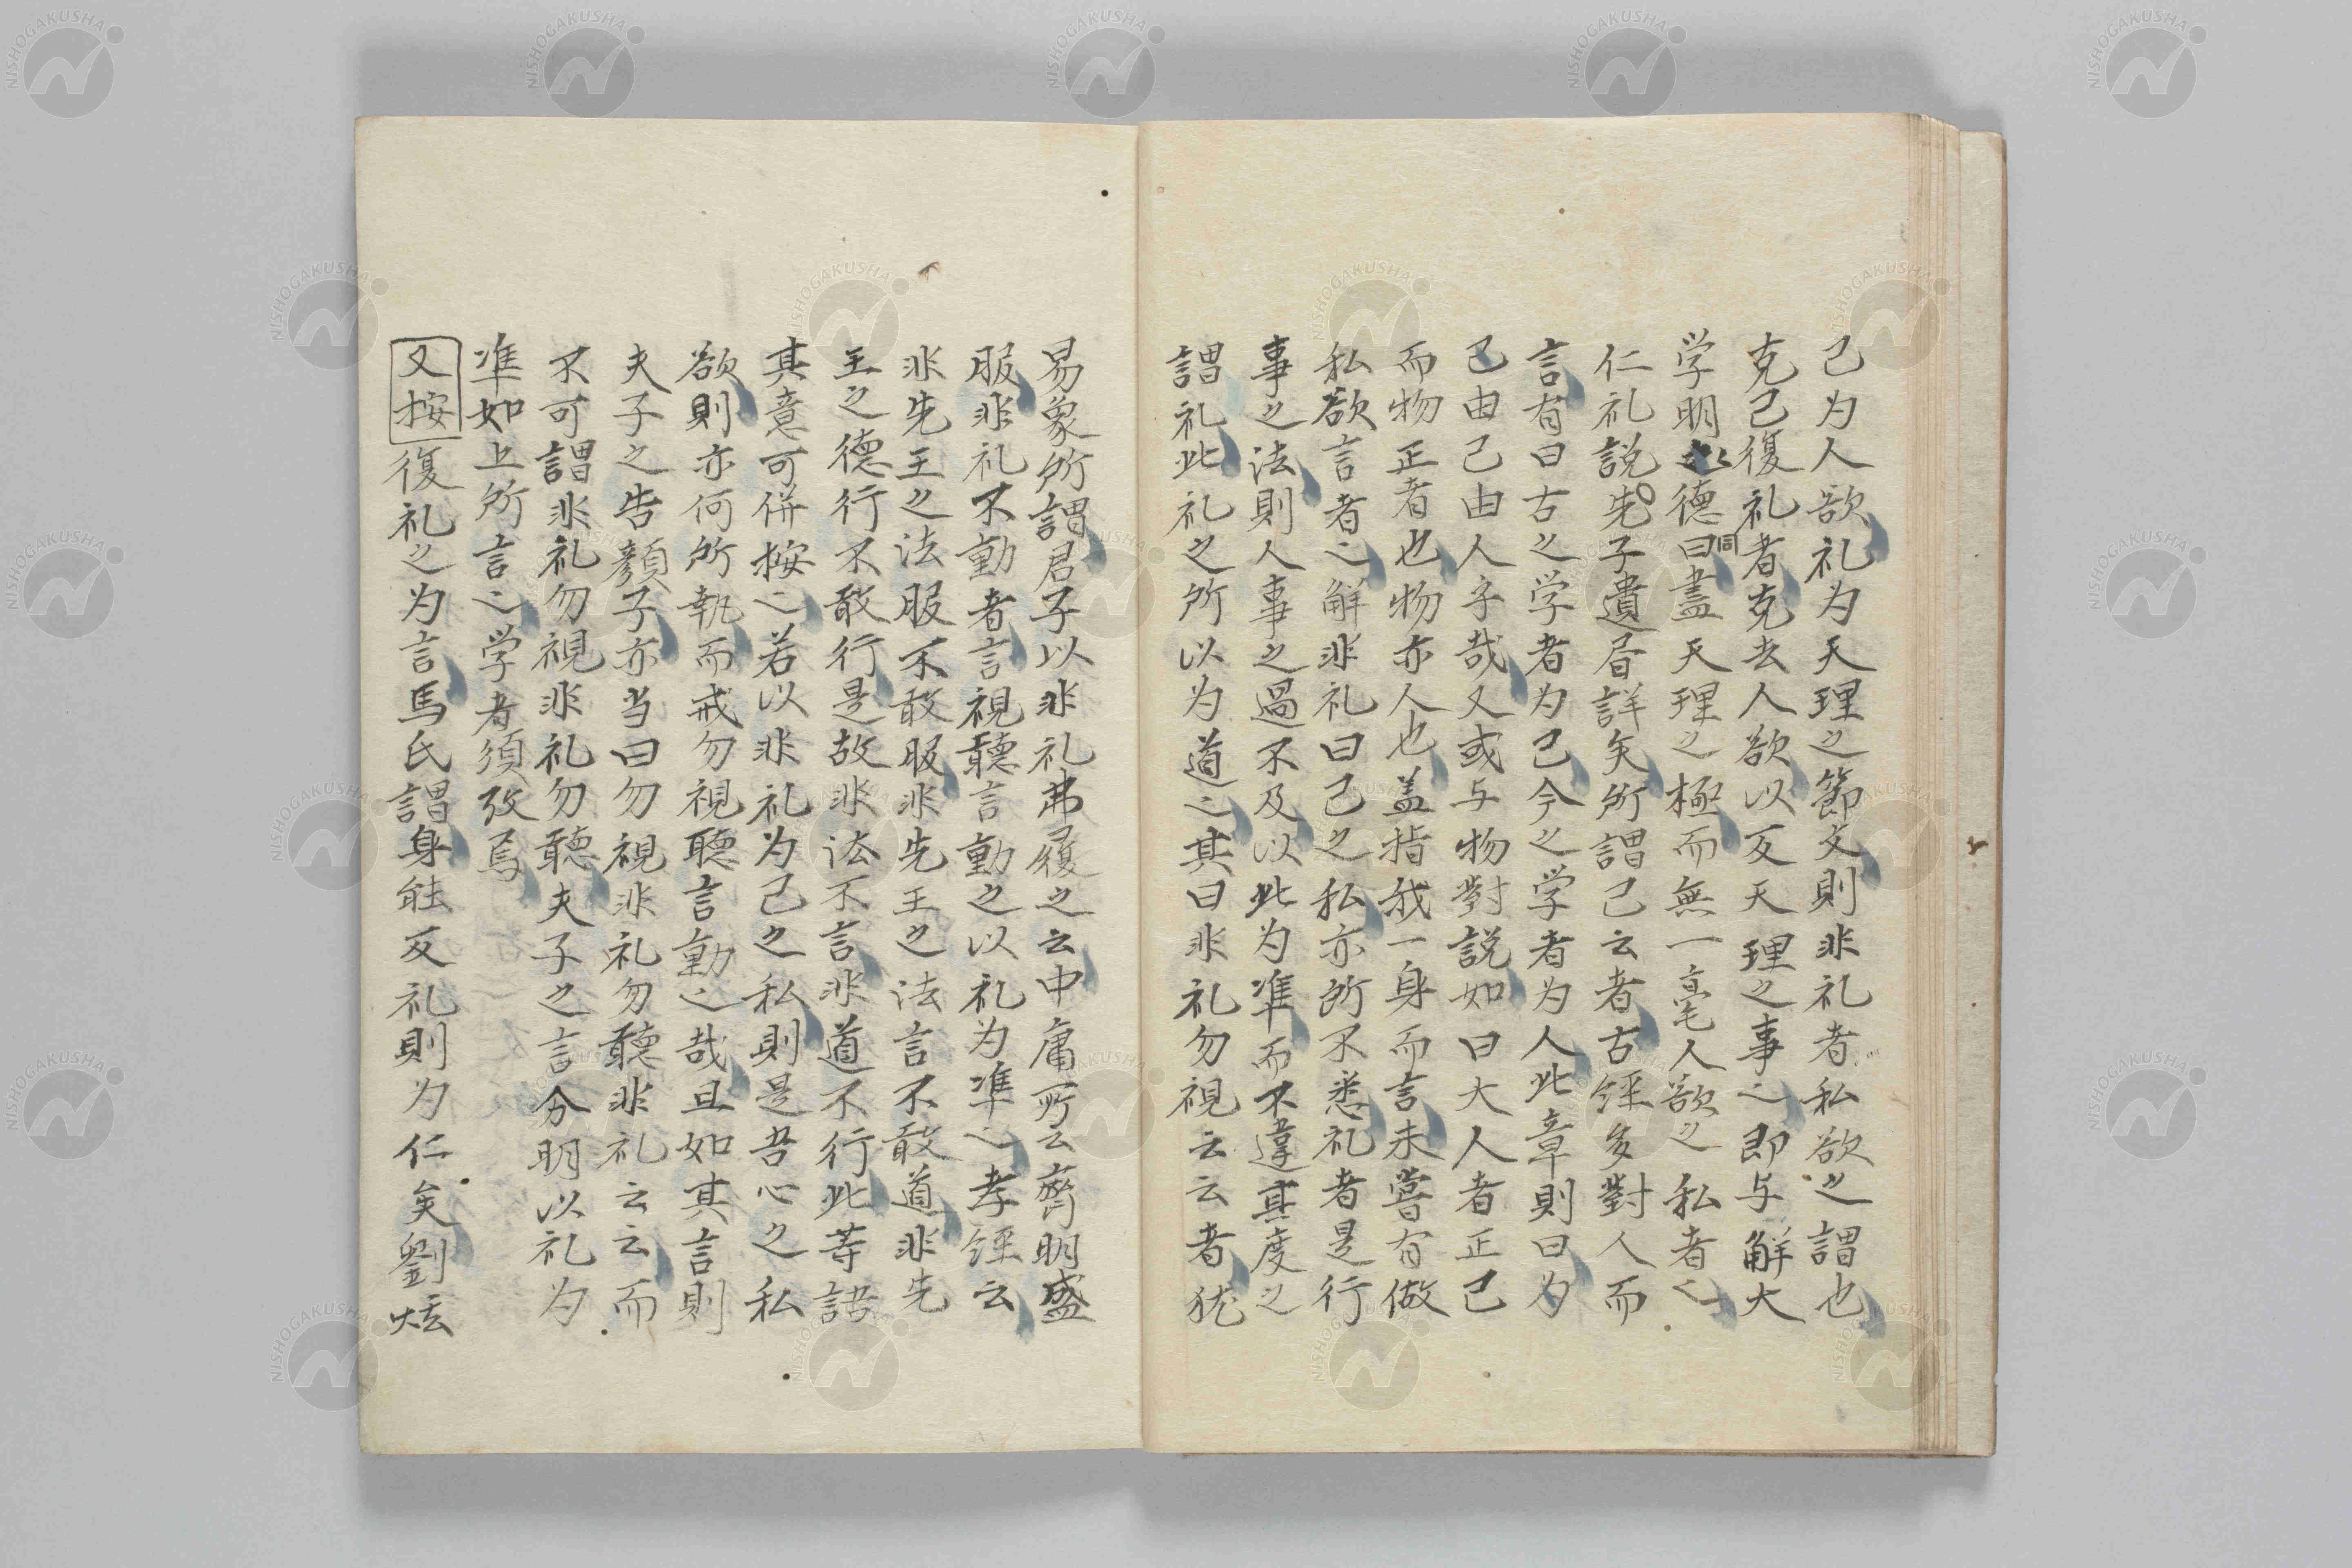 己为人欲礼为天理之節文則非礼者私欲之謂也
克己復礼者克去人欲以反天理之事之即与解大
学明德曰同盡天理之極而無一毫人欲之私者之
仁礼説先子遺昏詳矣所謂己云者古経多對人而
言有曰古之学者为己今之学者为人此章則曰为
己由己由人乎哉又或与物對説如曰大人者正己
而物正者也物亦人也盖指我一身而言未嘗有做
私欲言者之解非礼曰己之私亦所不悉礼者是行
事之法則人事之過不及以此为準而不違其度之
謂礼此礼之所以为道之其曰非礼勿視云云者犹
易象所謂君子以非礼弗履之云中庸所云齊明盛
服非礼不動者言視聽言動之以礼为準之孝経云
非先王之法服不敢服非先王之法言不敢道非先
王之德行不敢行是故非法不言非道不行此等語
其意可併按之若以非礼为己之私則是吾心之私
欲則亦何所執而戒勿視聽言動之哉且如其言則
夫子之告顏子亦当曰勿視非礼勿聽非礼云云而
不可謂非礼勿視非礼勿聽夫子之言分明以礼为
準如上所言之学者須攷焉
又按復礼之为言馬氏謂身能反礼則为仁矣劉炫
NISHOGAKUSHA